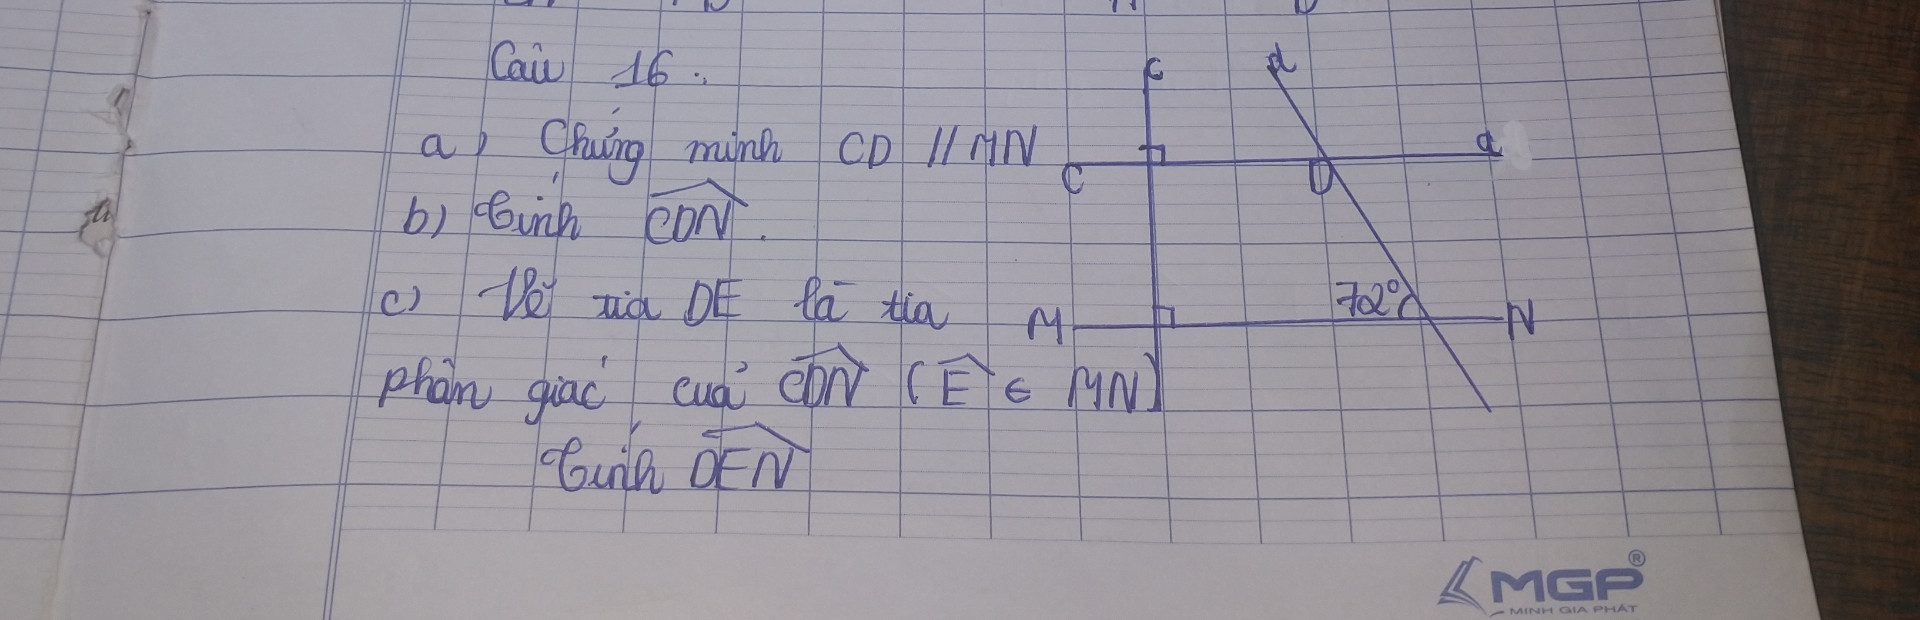 Câu 16:
a) Chứng minh CD // MN
b) Tính CDN.
c) Vẽ tia DE là tia
phân giác của CDN (E ∈ MN)
Tính DEN
c
d
a
C
D
M
72°
N
MGP®
MINH GIA PHÁT